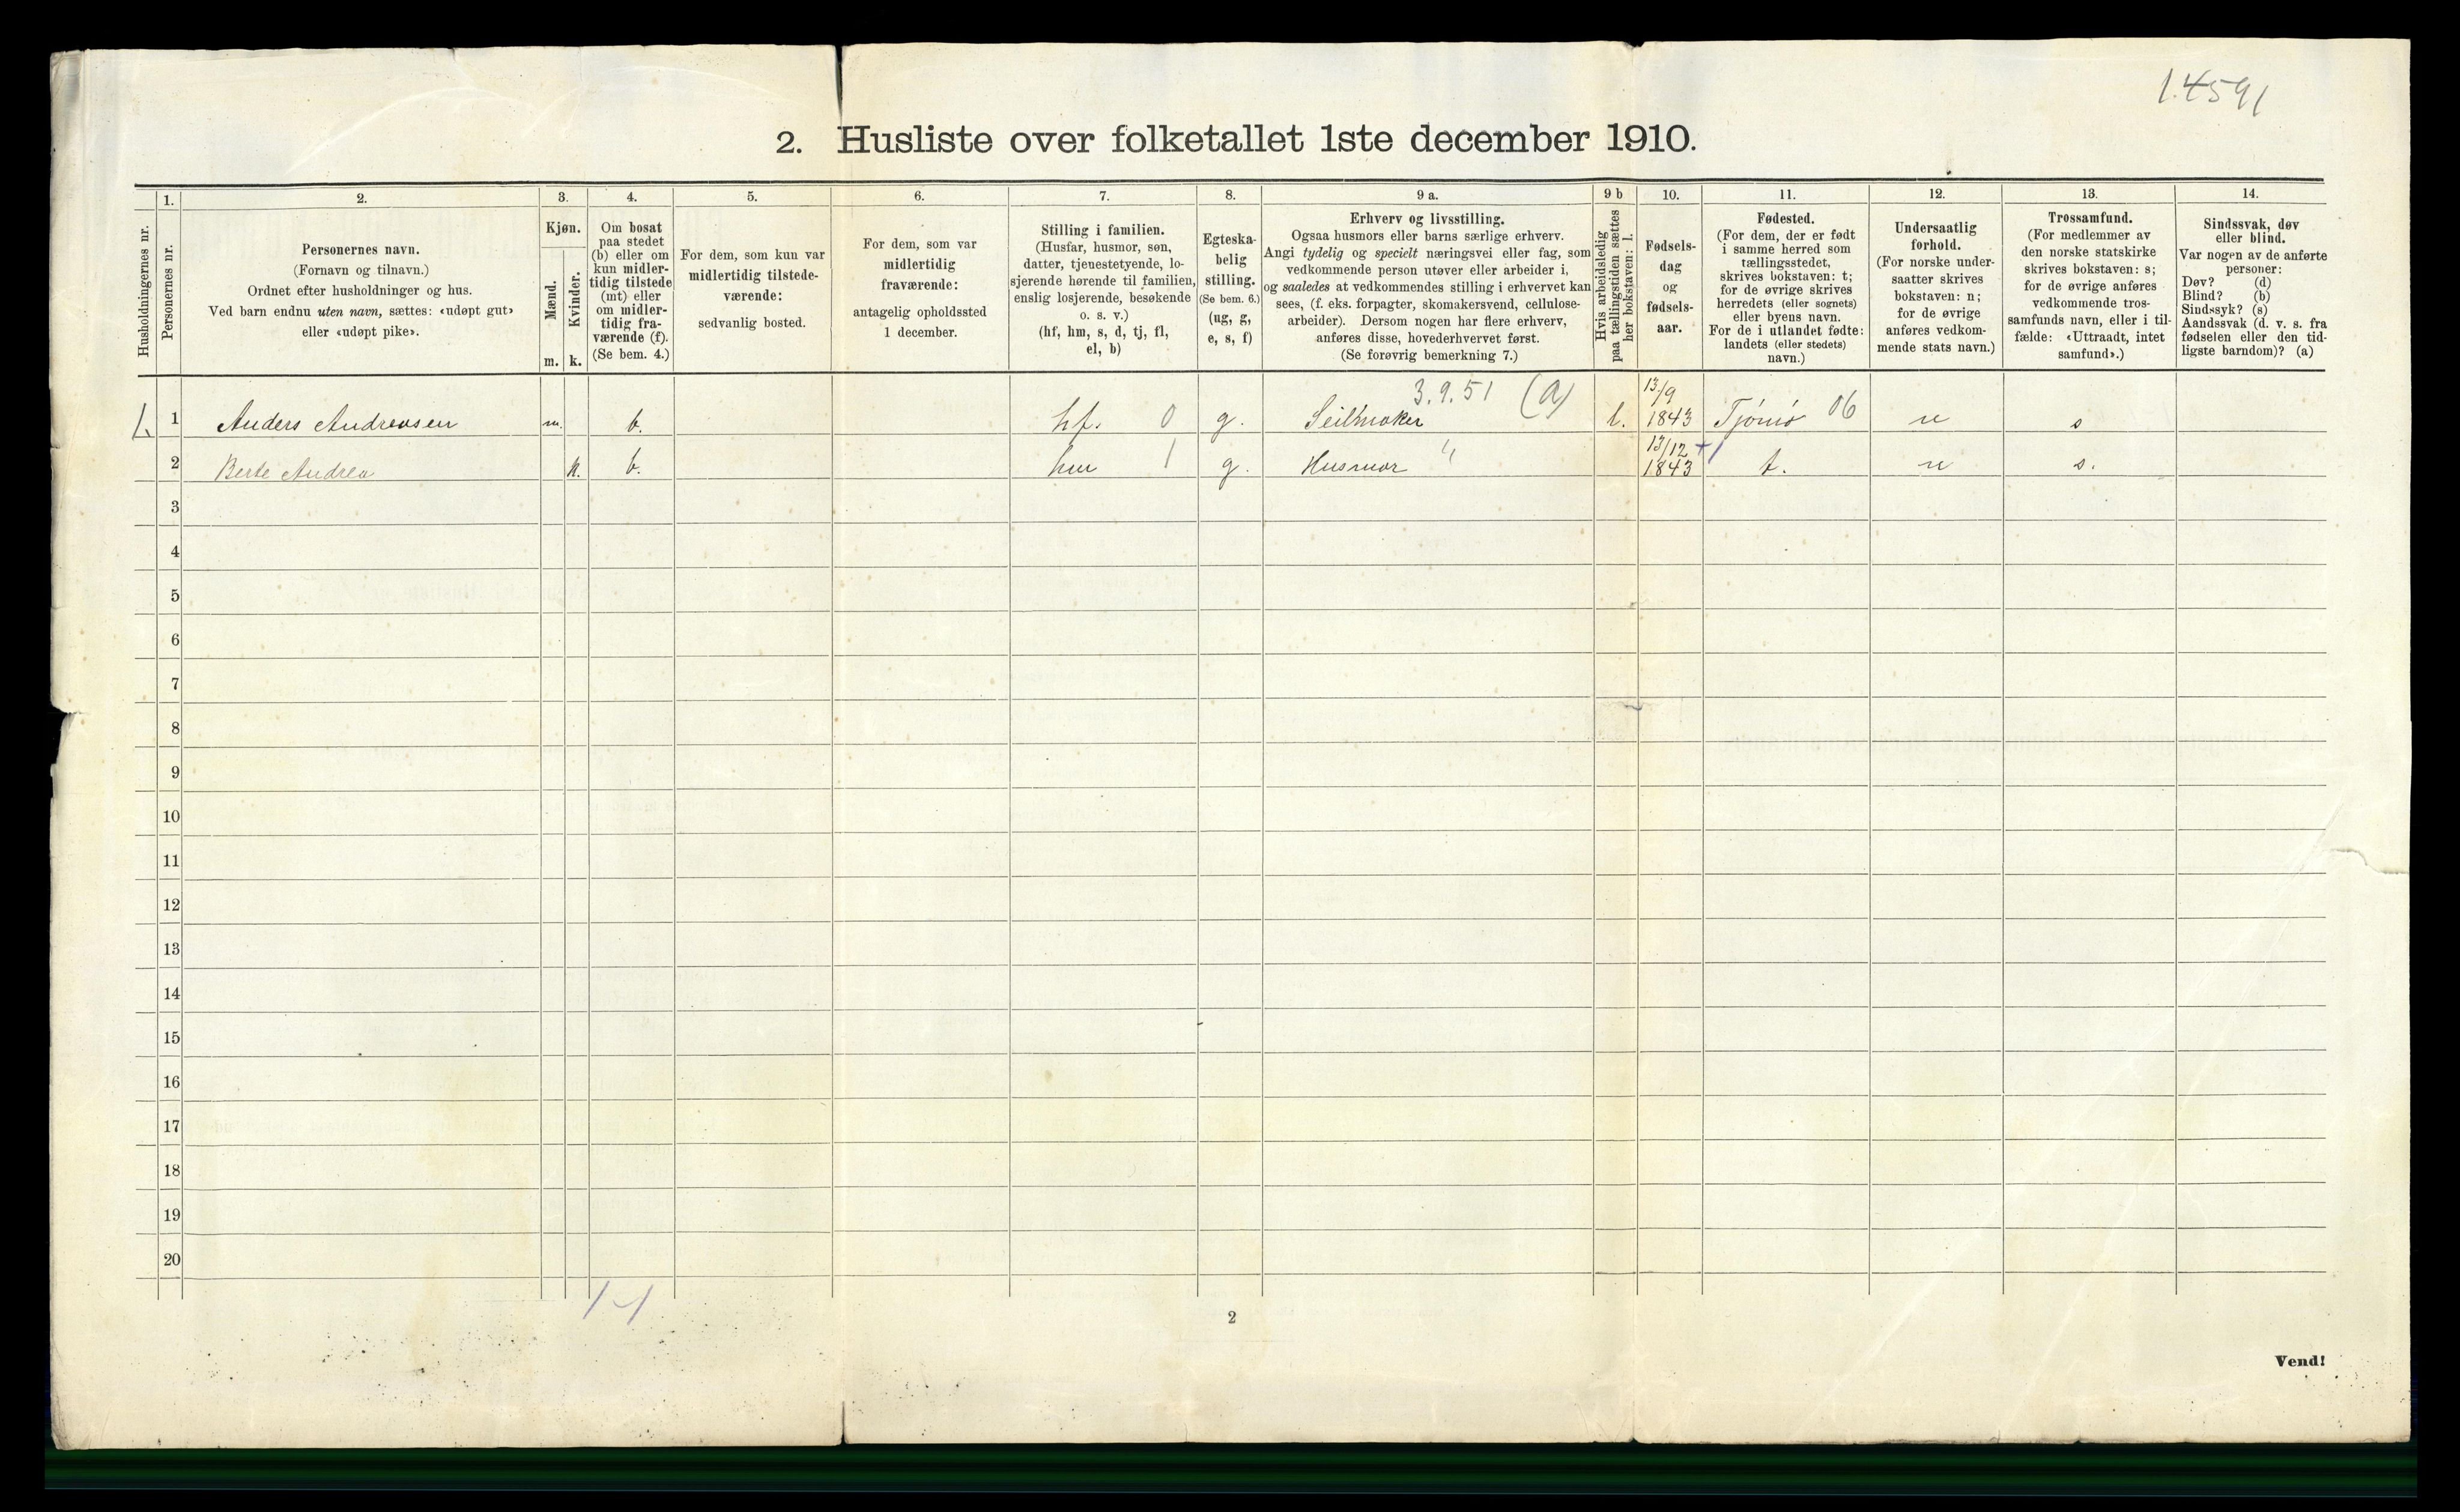 1.4591
2. Husliste over folketallet 1ste december 1910.
Husholdningernes nr.
1.
Personernes nr.
2.
Personernes navn.
(Fornavn og tilnavn.)
Ordnet efter husholdninger og hus.
Ved barn endnu uten navn, sættes: «udøpt gut»
eller «udøpt pike».
3.
Kjøn.
Mænd.
Kvinder.
m. k.
4.
Om bosat
paa stedet
(b) eller om
kun midler-
tidig tilstede
(mt) eller
om midler-
tidig fra-
værende (f).
(Se bem. 4.)
5.
For dem, som kun var
midlertidig tilstede-
værende:
sedvanlig bosted.
6.
For dem, som var
midlertidig
fraværende:
antagelig opholdssted
1 december.
7.
Stilling i familien.
(Husfar, husmor, søn,
datter, tjenestetyende, lo-
sjerende hørende til familien,
enslig losjerende, besøkende
o. s. v.)
(hf, hm, s, d, tj, fl,
el, b)
8.
Egteska-
belig
stilling.
(Se bem. 6.)
(ug, g,
e, s, f)
9 a.
Erhverv og livsstilling.
Ogsaa husmors eller barns særlige erhverv.
Angi tydelig og specielt næringsvei eller fag, som
vedkommende person utøver eller arbeider i,
og saaledes at vedkommendes stilling i erhvervet kan
sees, (f. eks. forpagter, skomakersvend, cellulose-
arbeider). Dersom nogen har flere erhverv,
anføres disse, hovederhvervet først.
(Se forøvrig bemerkning 7.)
9 b
Hvis arbeidsledig
paa tællingstiden sættes
her bokstaven: l.
10.
Fødsels-
dag
og
fødsels-
aar.
11.
Fødested.
(For dem, der er født
i samme herred som
tællingsstedet,
skrives bokstaven: t;
for de øvrige skrives
herredets (eller sognets)
eller byens navn.
For de i utlandet fødte:
landets (eller stedets)
navn.)
12.
Undersaatlig
forhold.
(For norske under-
saatter skrives
bokstaven: n;
for de øvrige
anføres vedkom-
mende stats navn.)
13.
Trossamfund.
(For medlemmer av
den norske statskirke
skrives bokstaven: s;
for de øvrige anføres
vedkommende tros-
samfunds navn, eller i til-
fælde: «Uttraadt, intet
samfund».)
14.
Sindssvak, døv
eller blind.
Var nogen av de anførte
personer:
Døv? (d)
Blind? (b)
Sindssyk? (s)
Aandssvak (d. v. s. fra
fødselen eller den tid-
ligste barndom)? (a)
3.9.51 (a) 13/9
1 Anders Andreasen m. b. hf. 0 g. Seilmaker l. 1843 Tjömö 06 n s
13/12
2 Berte Andrea k. b. hm 1 g. Husmor " 1843 t. n s.
3
4
5
6
7
8
9
10
11
12
13
14
15
16
17
18
19
20
1-1
2
Vend!